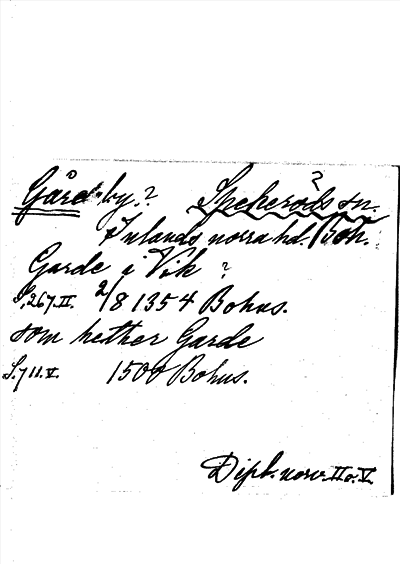 Gårdsby? Spekeröds sn. ?
Inlands norra hd. Boh.
Garde i Vik ?
S. 267. II. 2/8 1354 Bohus.
som hether Garde
S. 711. V. 1500 Bohus.
Dipl. norv. II o. V.